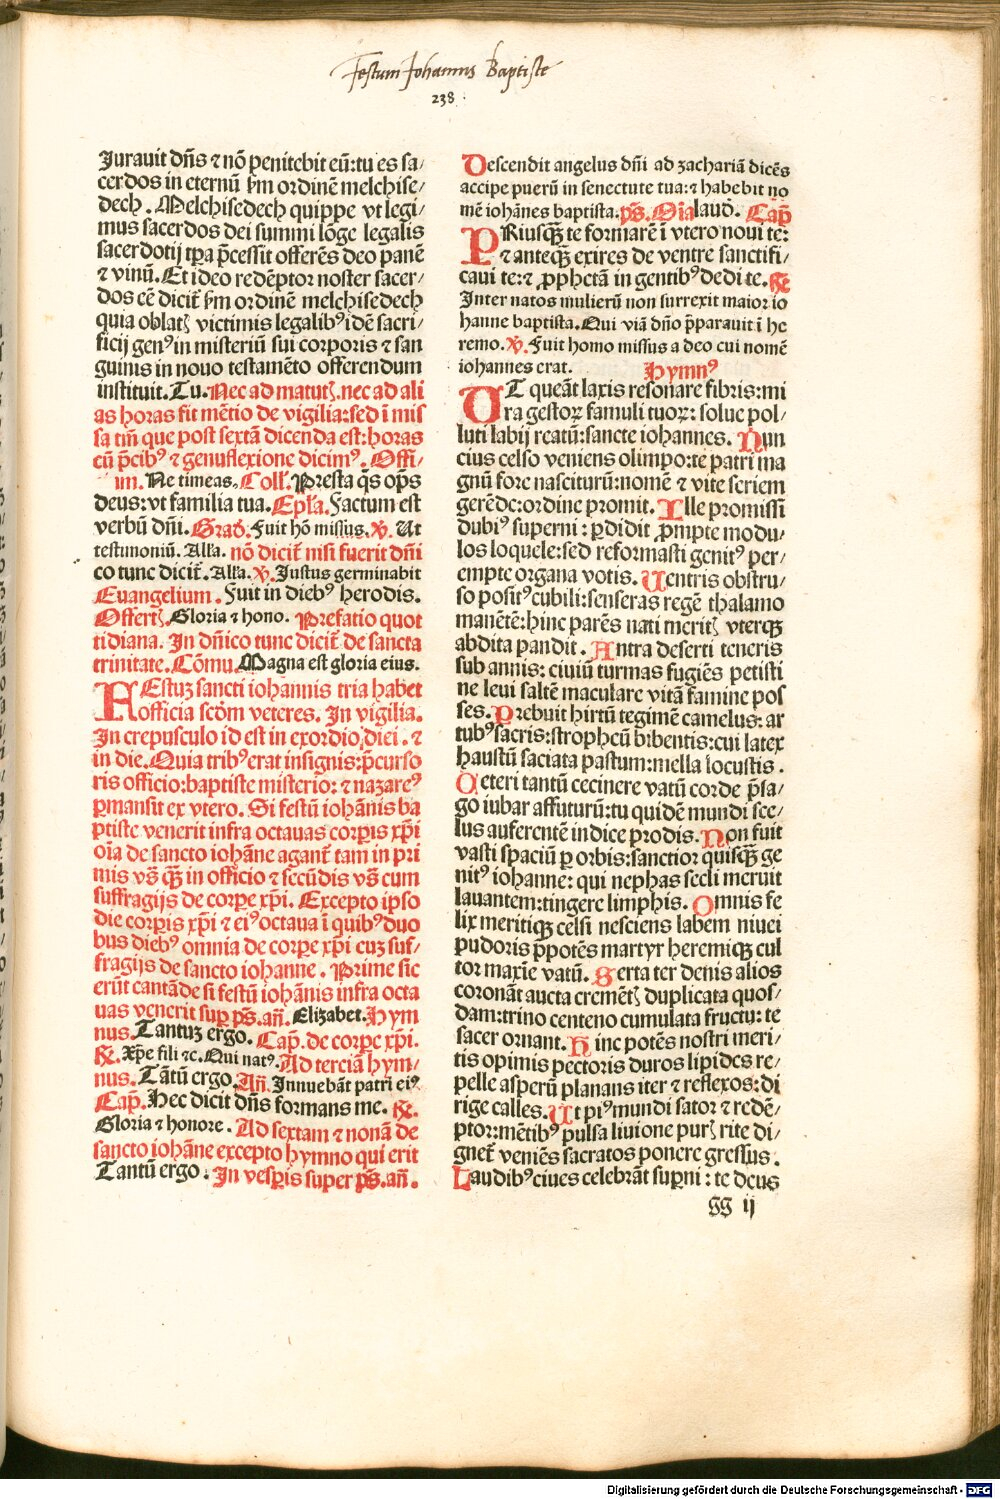 Festum Johannis Baptiste
238
Jurauit dn̄s ⁊ nō penitebit eū:tu es sa/
cerdos in eternū ẜm ordinē melchise/
dech . Melchisedech quippe vt legi/
mus sacerdos dei summi lōge legalis
sacerdotij tp̄a p̄cessit offerēs deo panē
⁊ vinū. Et ideo redēptor noster sacer/
dos eē dicit̄ ẜm ordinē melchisedech
quia oblatꝭ victimis legalibꝰ idē sacri/
ficij genꝰ in misteriū sui corporis ⁊ san
guinis in nouo testamēto offerendum
instituit. Tu. Nec ad matutꝭ. nec ad ali
as horas fit mētio de vigilia:sed ī mis
sa tm̄ que post sextā dicenda est:horas
cū p̄cibꝰ ⁊ genuflexione dicimꝰ. Offi/
im. Ne timeas. Coll'. Presta q̄s op̄s
deus:vt familia tua. Ep̄la. Factum est
verbū dn̄i. Grad̄. Fuit hō missus. ℣. Ut
testimoniū. Alla. nō dicit̄ nisi fuerit dn̄i
co tunc dicit̄. Alla. ℣. Justus germinabit
Euangelium. Fuit in diebꝰ herodis.
Offertꝭ. Gloria ⁊ hono. Prefatio quot
tidiana. In dn̄ico tunc dicit̄ de sancta
trinitate. Cōmu. Magna est gloria eius.
FEstuꝫ sancti iohannis tria habet
officia scd̄m veteres. In vigilia.
In crepusculo id est in exordio diei. ⁊
in die. Quia tribꝰ erat insignis:p̄curso
ris officio:baptiste misterio: ⁊ nazareꝰ
ꝑmansit ex vtero. Si festū iohānis ba
ptiste venerit infra octauas corꝑis xp̄i
oīa de sancto iohāne agant̄ tam in pri
mis vs̄ ꝙ̄ in officio ⁊ secūdis vs̄ cum
suffragijs de corꝑe xp̄i. Excepto ipso
die corꝑis xp̄i ⁊ eiꝰ octaua ī quibꝰ duo
bus diebꝰ omnia de corꝑe xp̄i cuꝫ suf/
fragijs de sancto iohanne. Prime sic
erūt cantāde si festū iohānis infra octa
uas venerit suꝑ ps̄. an̄. Elizabet. Hym
nus. Tantuꝫ ergo. Cap̄. de corꝑe xp̄i.
℟. Xp̄e fili ⁊c. Qui natꝰ. Ad terciā hym/
nus. Tātū ergo. An̄. Innuebāt patri eiꝰ
Cap̄. Hec dicit dn̄s formans me. ℟.
Gloria ⁊ honore. Ad sextam ⁊ nonā de
sancto iohāne excepto hymno qui erit
Tantū ergo. In vesꝑis super ps̄. an̄.
Descendit angelus dn̄i ad zachariā dicēs
accipe puerū in senectute tua:⁊ habebit no
mē iohānes baptista. ps̄. Oīa laud̄. Cap̄
PRiusꝙ̄ te formarē ī vtero noui te:
⁊ anteꝙ̄ exires de ventre sanctifi/
caui te:⁊ ꝓphetā in gentibꝰ dedi te. ℟
Inter natos mulierū non surrexit maior io
hanne baptista. Qui viā dn̄o p̄parauit ī he
remo. ℣. Fuit homo missus a deo cui nomē
iohannes erat. Hymnꝰ
UT queāt laxis resonare fibris:mi
ra gestoꝝ famuli tuoꝝ: solue pol/
luti labij reatū:sancte iohannes. Nun
cius celso veniens olimpo:te patri ma
gnū fore nasciturū:nomē ⁊ vite seriem
gerēde:ordine promit. Ille promissi
dubiꝰ superni : ꝑdidit ꝓmpte modu/
los loquele:sed reformasti genitꝰ per/
empte organa votis. Uentris obstru/
so positꝰ cubili:senseras regē thalamo
manētē:hinc parēs nati meritꝭ vterqꝫ
abdita pandit. Antra deserti teneris
sub annis: ciuiū turmas fugiēs petisti
ne leui saltē maculare vitā famine pos
ses. Prebuit hirtū tegimē camelus: ar
tubꝰ sacris:strophcū bibentis:cui latex
haustū saciata pastum:mella locustis .
Ceteri tantū cecinere vatū corde p̄sa/
go iubar affuturū:tu quidē mundi sce/
lus auferentē indice prodis. Non fuit
vasti spaciū ꝑ orbis:sanctior quisꝙ̄ ge
nitꝰ iohanne: qui nephas secli meruit
lauantem:tingere limphis. Omnis fe
lix meritiqꝫ celsi nesciens labem niuei
pudoris p̄potēs martyr heremiqꝫ cul
tor maxīe vatū. Serta ter denis alios
coronāt aucta cremētꝭ duplicata quos/
dam:trino centeno cumulata fructu: te
sacer ornant. Hinc potēs nostri meri/
tis opimis pectoris duros lipides re/
pelle asperū planans iter ⁊ reflexos:di
rige calles. Ut piꝰ mundi sator ⁊ redē/
ptor:mētibꝰ pulsa liuione purꝭ rite di/
gnet̄ veniēs sacratos ponere gressus.
Laudibꝰ ciues celebrāt suꝑni : te deus
gg ij
Digitalisierung gefördert durch die Deutsche Forschungsgemeinschaft - DFG